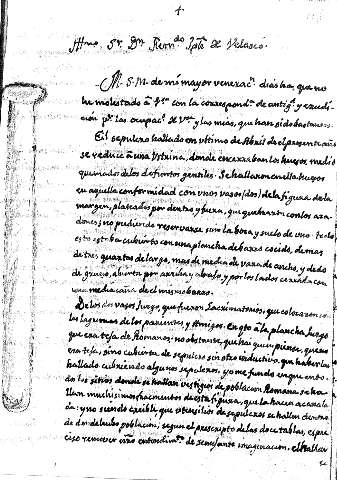 Illmo. Sr. Dn. Fern.do Jph. de Velasco.
M. S. M. de mi mayor venerac.n dias ha, que no
he molestado â V. con la correspond.a de antig.s y erudi-
cion p.r las ocupac.s de V. y las mias, que han sido bastantes.
El sepulcro hallado en ultimo de Abril del presente año
se reduce â una Urnina, donde encerraban los huesos medio
quemados de los difuntos gentiles. Se hallaron en ella huesos
en aquella conformidad con unos vasos (dos) de la figura de la
margen, plateados por dentro y fuera, que quebraron con los aza-
dones, no pudiendo reservarse sino la bora y suelo de uno. Todo
esto estaba cubierto con una plancha de barro cocido, de mas
de tres quartos de largo, mas de media vara de ancho, y dedo
de grueso, abierta por arriba y abajo, y por los lados cerrada con
una media caña de el mismo barro.
De los dos vasos juzgo, que fueron Lacrimatorios, que colocaron
las lagrimas de los parientes y Amigos. En q.to â la plancha, juzgo
que era teja de Romanos: no obstante, que hai quien piense, que no
era teja, sino cubierta de sepulcro sin otro inductivo, que haberlas
hallado cubriendo algunos sepulcros. yo me fundo en que en to-
dos los sitios donde se hallan vestigios de poblacion Romana se ha-
llan muchisimos fracmentos de esta figura, que la hacia acanala-
da: y no siendo creible, que utensilios de sepulcros se hallen dentro
de la poblacion, segun el prescripto de las doce tablas, es pre-
ciso remover otro entendim.to de semejante imaginacion. el hallar
se